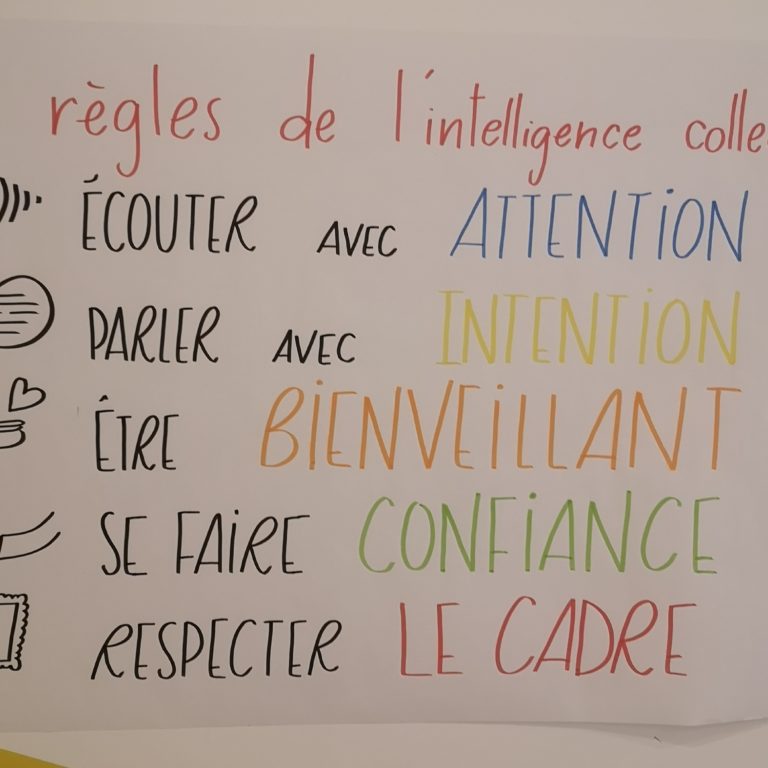 règles de l'intelligence colle
ÉCOUTER AVEC ATTENTION
PARLER AVEC INTENTION
ÊTRE BIENVEILLANT
SE FAIRE CONFIANCE
RESPECTER LE CADRE